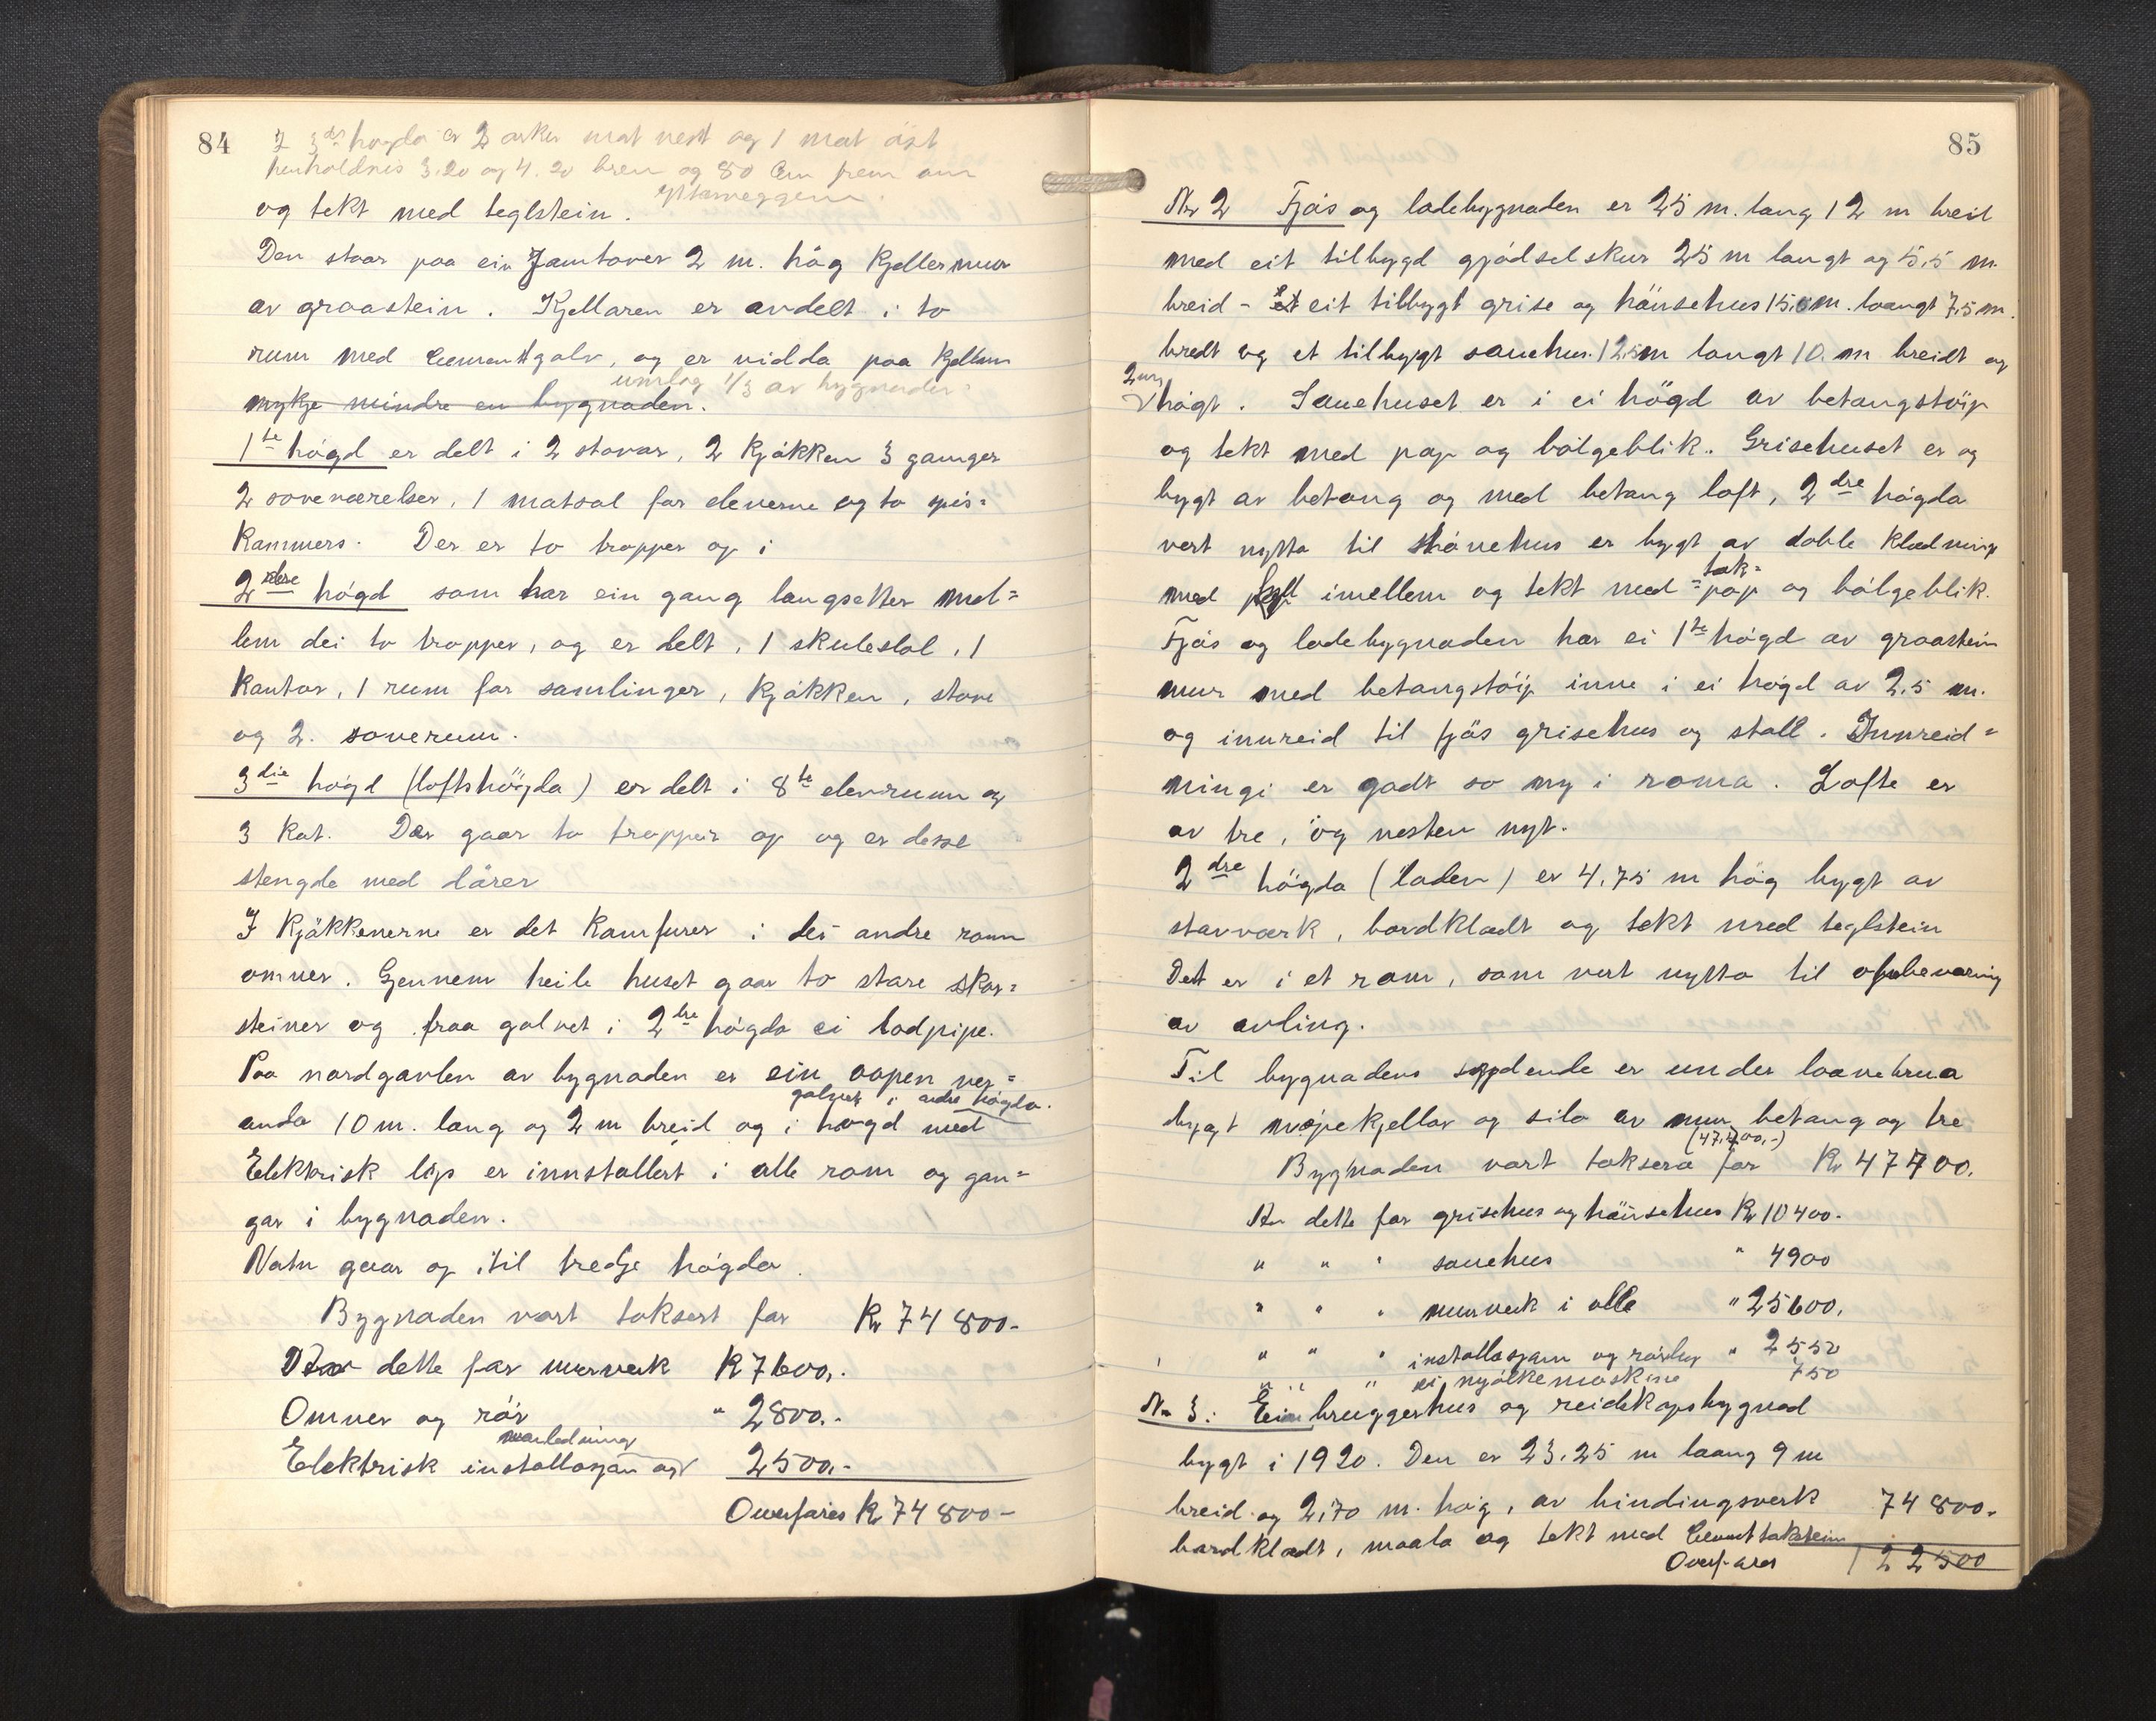 84
I 3die høgda er 2 arker mot vest og 1 mot öst
henholdsvis 3.20 og 4.20 brei og 80 cm frem om
yttarveggen.
og tekt med teglstein.
Den staar paa ein Jamtover 2 m. håg Kjellermur
av graastein. Kjellaren er avdelt i to
rum med Cementgolv, og er vidda paa Kjellern
umlag 1/3 av bygnaden
mykje mindre en bygnaden.
1te högd er delt i 2 stovar, 2 Kjökken 3 ganger
2 soveværelser, 1 matsal for eleverne og to spis=
Kammers. Der er to trapper op i
2dre högd som har ein gang langsetter mel=
lem dei to trapper, og er delt, 1 skulestol, 1
Kontor, 1 rum for samlinger, Kjökken, stove
og 2. soverum.
3die högd (loftshögda) er delt i 8te elevrum og
3 Kot. Der gaar to trapper op og er desse
stengde med dörer
I Kjökkenerne er det Komfurer i dei andre rom
omner. Gjennem heile huset gaar to store skor=
steiner og fraa golvet i 2dre högda ei lodpipe.
Paa nordgavlen av bygnaden er ein aapen ver=
golvet i andre högda.
anda 10 m. lang og 2 m breid og i högd med
Elektrisk ljos er innstallert i alle rom og gan=
gar i bygnaden.
Vatn gaar op til tredje högda.
Bygnaden vart taksert for Kr 74 800-
Der dette for murverk Kr 7600,-
Omner og rör " 2800.-
vanledning
Elektrisk installasjon og 2500,-
Overføres Kr 74 800-
85
Nr 2 Fjös og ladebygnaden er 25 m. lang 12 m breid
med eit tilbygd gjödselskur 25 m langt og 5,5 m.
breid - eit tilbygt grise og hönsehus 15,0 m. laangt 7,5 m.
bredt og et tilbygt sauehus 12,5 m langt 10. m breidt og
2 m
högt. Sauehuset er i ei högd av betongstöip
og tekt med pap og bölgeblik. Grisehuset er og
bygt av betong og med betong loft, 2dre högda
vert nytta til hönehus er bygt av doble Klædning
tak=
med imellem og tekt med =pap og bölgeblik.
Fjös og ladebygnaden har ei 1te högd av graastein
mur med betongstöip inne i ei högd av 2,5 m.
og innreid til fjös grisehus og stall. Innreid=
ningi er godt so ny i roma. Lofte er
av tre, og nesten nyt.
2dre högda (laden) er 4,75 m hög bygt av
stavværk, bordklædt og tekt med teglstein
Det er i et rom, som vert nytta til opbevaring
av avling.
Til bygnadens sydende er under laavebrua
bygt næpekjellar og silo av mur betong og tre
(47,700,-)
Bygnaden vart taksera for Kr 47700.
Av dette for grisehus og hönsehus Kr 10400-
" " " sauehus " 4900
" " " murverk i alle " 25600,
" " " installasjon og rörlegg " 2550
" " " ei mjölkemaskine 750
Nr 3: Ein bryggerhus og reidskapsbygnad
bygt i 1920. Den er 23.25 m laang 9 m
breid og 2,70 m. hög, av bindingsverk 74 800.
bordklædt, maala og tekt med Cementtakstein
Overføres 122500